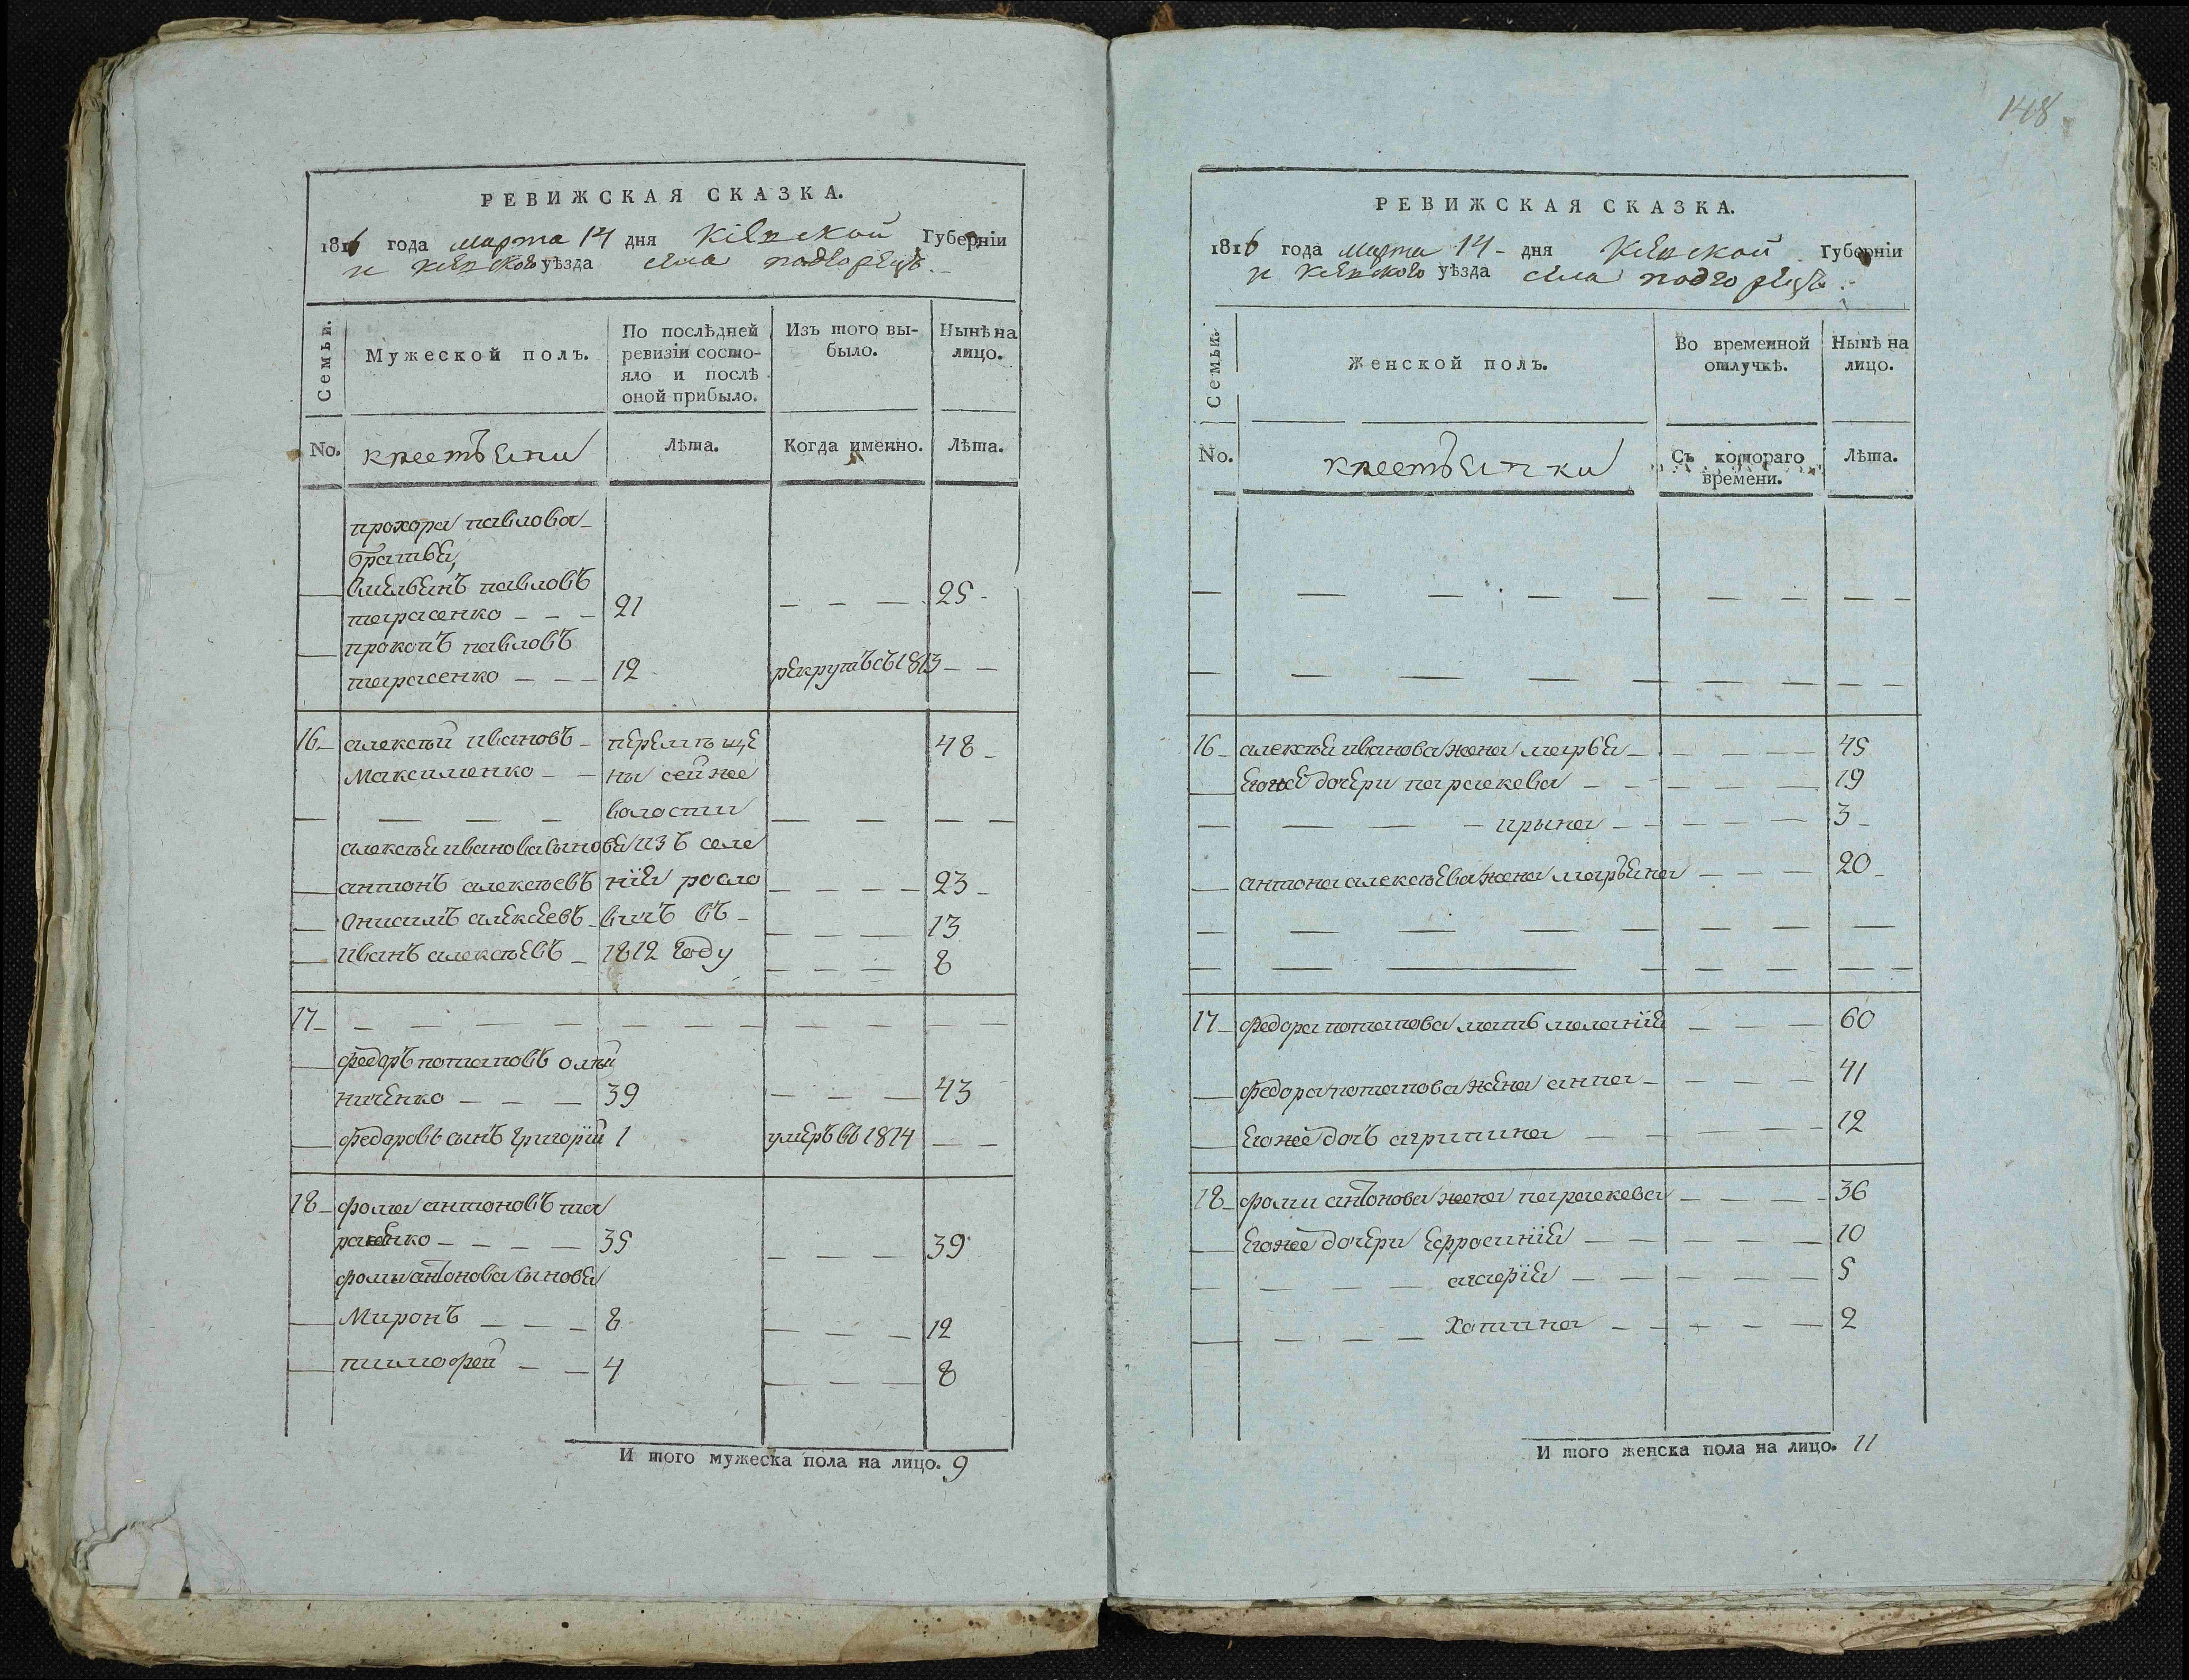 РЕВИЖСКАЯ СКАЗКА.
1816 года марта 14 дня Кіевской Губерніи
и Кіевского уѣзда села подгорецъ.
Семьи.
Мужеской полъ.
По послѣдней ревизіи состояло и послѣ оной прибыло.
Изъ того выбыло.
Нынѣ на лицо.
No.
крестьяни
Лѣта.
Когда именно.
Лѣта.
прохора павлова
братья,
Омельянъ павловъ
тарасенко 21 25
прокопъ павловъ
тарасенко 12 рекрутъ съ 1813
16 алексѣй ивановъ перемѣще 48
Максименко ны сей же
волости
алексѣя иванова сыновя изъ селе
антонъ алексѣевъ нія 23
Онисимъ алексеевъ въ 13
иванъ алексѣевъ 1812 году 8
17
федоръ потаповъ олѣй
ниченко 39 43
федоровъ сынъ григорій 1 умеръ въ 1814
18 фома антоновъ та
39
35
фомы антонова сыновя
Миронъ 8 12
тимофей 4 8
И того мужеска пола на лицо. 9
148
РЕВИЖСКАЯ СКАЗКА.
1816 года марта 14 дня Кіевской Губерніи
и Кіевского уѣзда села подгорецъ.
Семьи.
Женской полъ.
Во временной отлучкѣ.
Нынѣ на лицо.
No.
крестьянки
Съ котораго времени.
Лѣта.
16 алексѣя иванова жена марья 45
егоже дочери параскева 19
ирына 3
антона алексѣева жена марьяна 20
17 федора потапова мать меланія 60
федора потапова жена анна 41
егоже дочь агрипина 12
18 фомы антонова жена параскева 36
егоже дочери Ефросинія 10
5
2
И того женска пола на лицо. 11